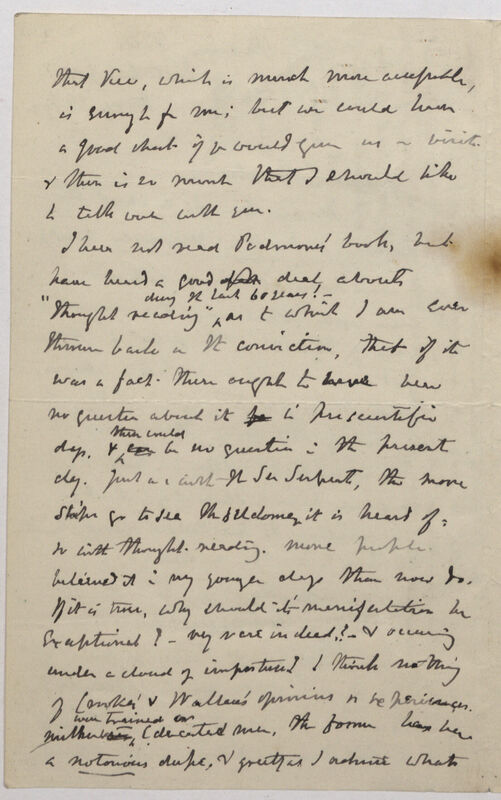 that view, which is much more acceptable,
is enough for me; but we could have
a good chat if you would give us a visit
& there is so much that I should like
to talk over with you.
I have not read Podmore's book, but
have heard a good deal about
during the last 60 years! –
"thought reading", as to which I am ever
thrown back on the conviction, that if it
was a fact there ought to have been
no question about it in prescientific
there could
days, & be no question in the present
day. Just as with the Sea Serpent, the more
ships go to sea the seldomer it is heard of:
so with thought-reading. more people
believed it in my younger days than now do.
If it is true, why should its manifestation be
exceptional? – very rare indeed? – & occurring
under a cloud of imposture? I think nothing
of Crookes' & Wallace's opinions or experiences.
were trained or
neither educated men, the former has been
a notorious dupe, & greatly as I admire what